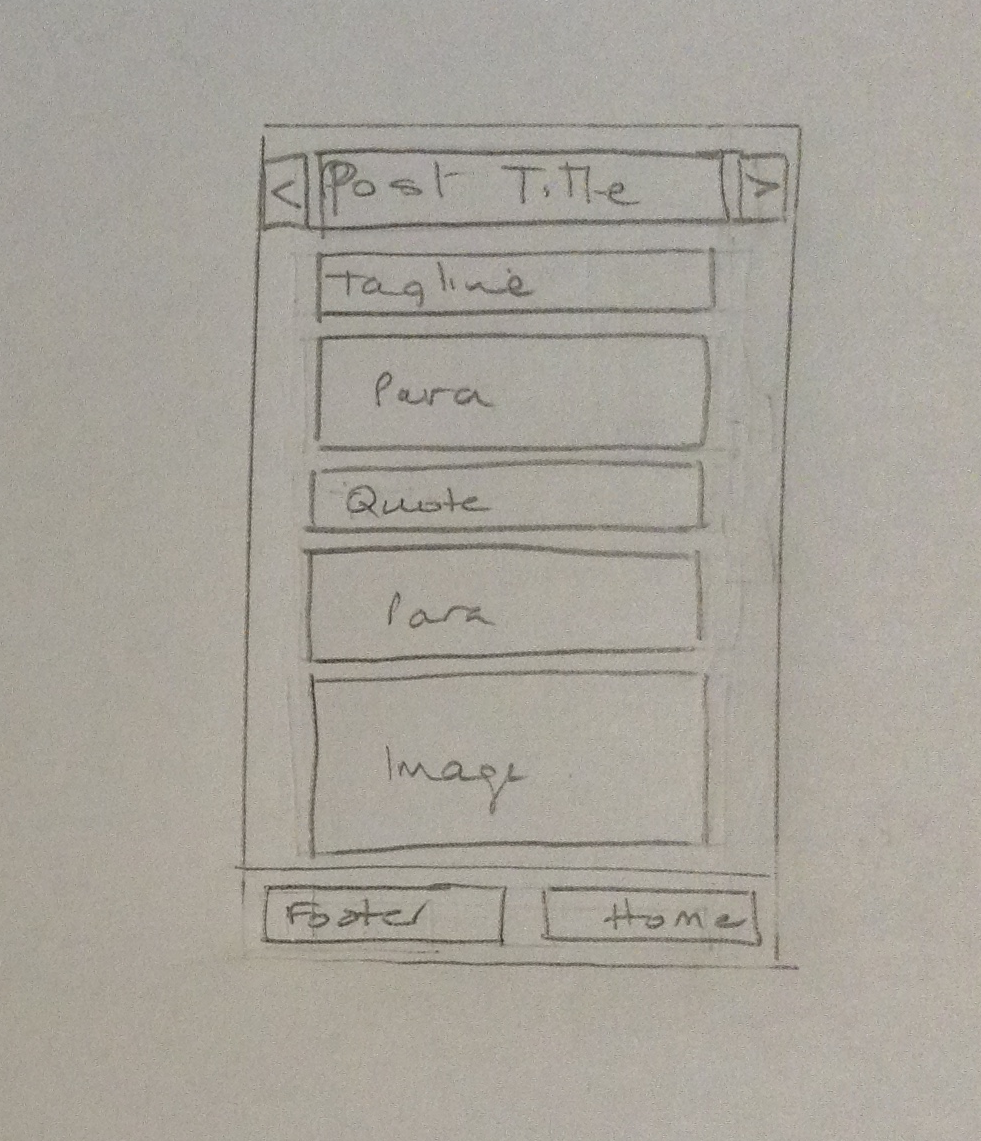 < Post Title >
Tagline
Para
Quote
Para
Image
Footer Home